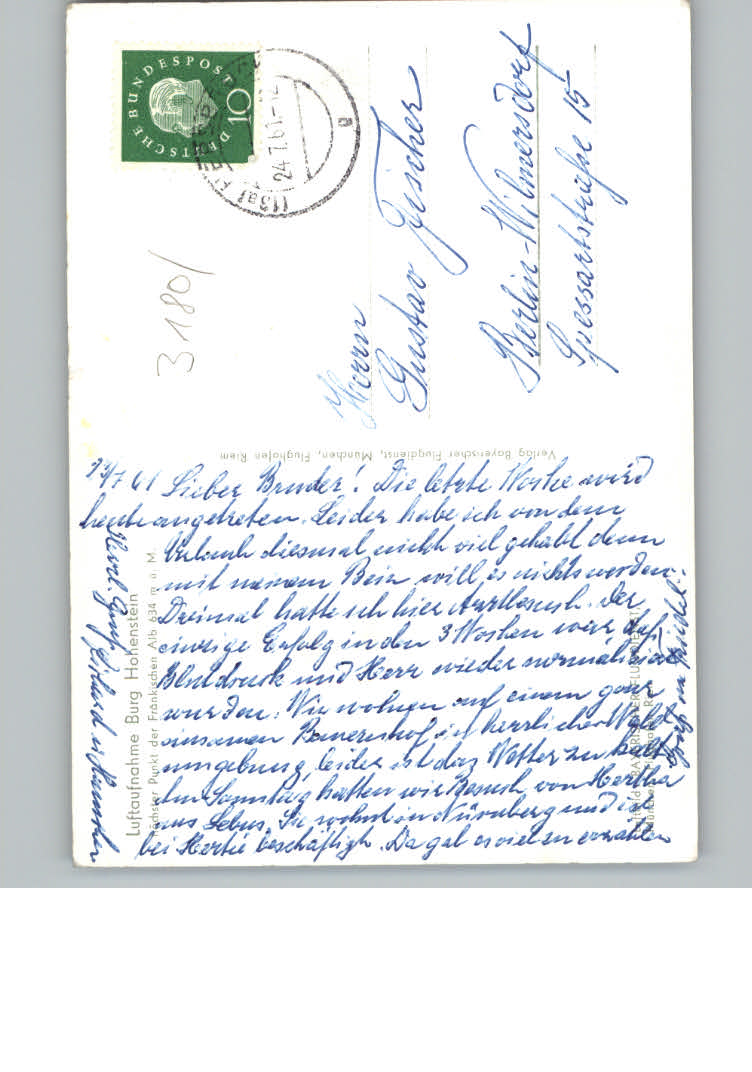 DEUTSCHE BUNDESPOST
10
(13a)
24.7.61.-12
a
3180/
Herrn
Gustav Fischer
Berlin-Wilmersdorf
Spessartstraße 15
Verlag Bayerischer Flugdienst, München, Flughafen Riem
23/7 61 Lieber Bruder! Die letzte Woche wird
heute angetreten. Leider habe ich von dem
Urlaub diesmal nicht viel gehabt denn
mit meinem Bein will es nichts werden.
Dreimal hatte ich hier Arztbesuch. Der
einzige Erfolg in den 3 Wochen war daß
Blutdruck und Herz wieder normalisiert
wurden. Wir wohnen auf einem ganz
einsamen Bauernhof in herrlicher Wald
umgebung, leider ist das Wetter zu kalt.
Am Sonnstag hatten wir Besuch von Hertha
aus Lebus. Sie wohnt in Nürnberg und ist
bei Hertie beschäftigt. Da gab es viel zu erzählen
Herzl. Gruß Richard u. Hannchen
Luftaufnahme Burg Hohenstein
Höchster Punkt der Fränkischen Alb 634 m ü. M.